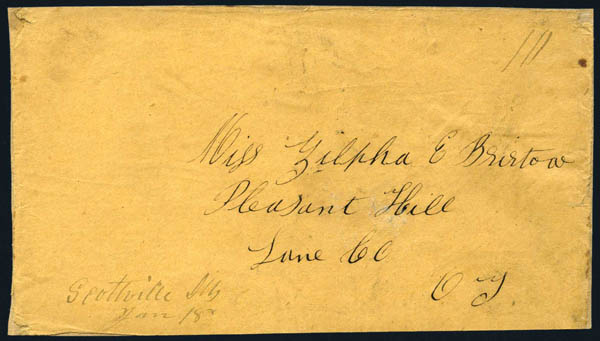 10
Miss Zilpha E Bristow
Pleasant Hill
Lane Co
O y
Scottville Ills
Jan 18